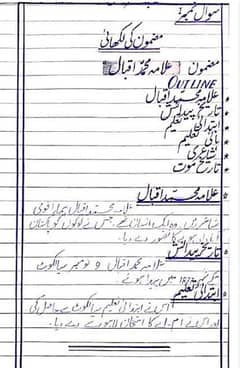 سوال نمبر:
مضمون کی لکھائی
مضمون علامہ محمد اقبال
OUTLINE
علامہ محمد اقبال
تاریخ پیدائش
ابتدائی تعلیم
تعلیم
شاعری
تاریخ موت
علامہ محمد اقبال
علامہ محمد اقبال ہمارا قومی
شاعر ہیں وہ ایک انسان تھے جس نے لوگوں کو پاکستان
کا تصور دے دیا۔
تاریخ پیدائش
علامہ محمد اقبال 9 نومبر سیالکوٹ
میں پیدا ہوئے
ابتدائی تعلیم
اس نے ابتدائی تعلیم سیالکوٹ سے حاصل کی
اور اس نے ایم۔اے کا امتحان لاہور سے دے دیا۔